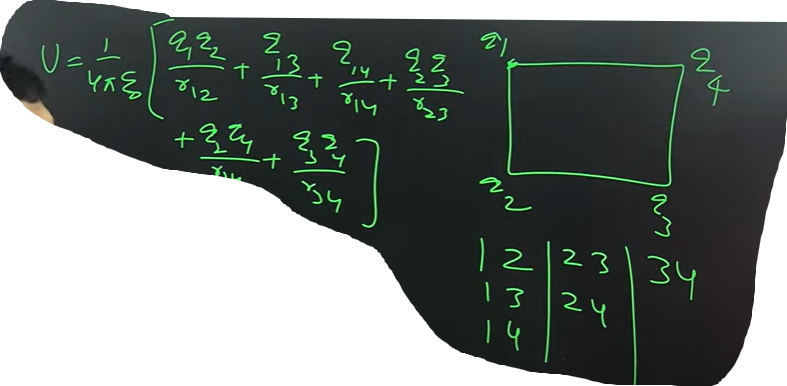 U = 1/4πε₀ [ q₁q₂/r₁₂ + q₁₃/r₁₃ + q₁₄/r₁₄ + q₂q₃/r₂₃
+ q₂q₄/r₂₄ + q₃q₄/r₃₄ ]
q₁ q₄
q₂ q₃
12 | 23 | 34
13 | 24 |
14 | |